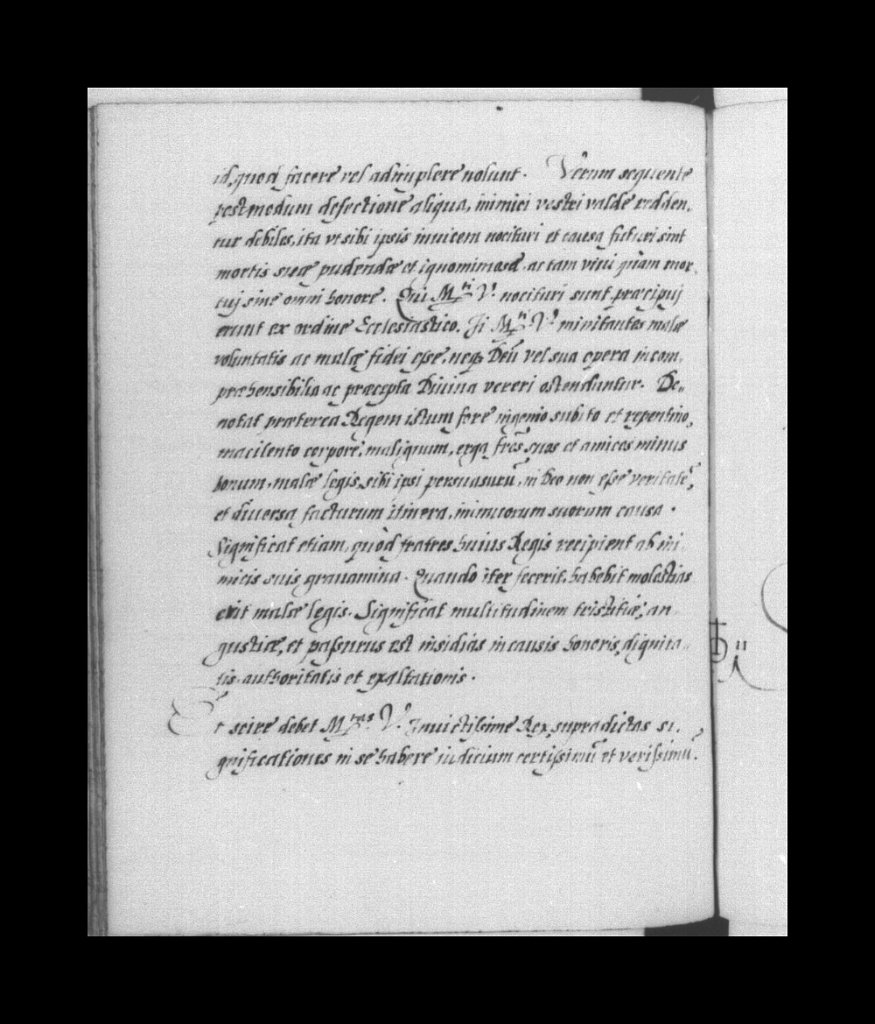 id, quod facere vel adimplere nolunt. Verum sequente
postmodum defectione aliqua, inimici vestri valde redden,
tur debiles, ita vt sibi ipsis inuicem nocituri et causa futuri sint
mortis suæ pudendæ et ignominiosæ, ac tam viui quam mor,
tui sine omni honore. Qui M.ti V. nocituri sunt, præcipuj
erunt ex ordine Ecclesiastico. Ii M.ti V. minitantes malæ
voluntatis ac malæ fidei esse, neq; Deū vel sua opera incom,
præhensibilia ac præcepta Diuina vereri ostenduntur. De,,
notat præterea Regem istum fore ingenio subito et repentino,
macilento corpore, malignum, erga frēs suos et amicos minus
bonum, malæ legis, sibi ipsi persuasurū, in Deo non esse veritatē,
et diuersa facturum itinera, inimicorum suorum causa.
Significat etiam, quòd fratres huius Regis recipient ab ini
micis suis grauamina. Quando iter fecerit, habebit molestias
erit malæ legis. Significat multitudinem tristitiæ, an
gustiæ, et passurus est insidias in causis honoris, dignita
tis, authoritatis et exaltationis.
Et scire debet M.tas V. Inuictissime Rex, supradictas si,
gnificationes in se habere iudicium certissimū et verissimū.